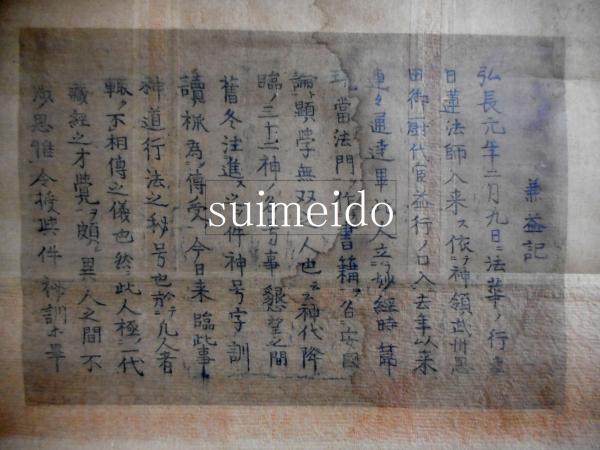 兼益記
弘長元年二月九日ニ法華ノ行
日蓮法師入来ス依テ神領武州
田御厨代官益行ノ口入去年以来
連々通達畢 人立 妙経時
當法門 作 書籍 安國
論顕学無双 人也云云神代降
臨ノ三十二神ノ 事懇望之間
舊冬注進ス 件神号字訓
讀 為傳受 今日来臨此事
神道行法之秘号也於 凡人者
輙ク不相傳之儀也然ニ此人極一代
蔵経之才覚 頗ル異人之間不
思惟令授與件 訓 畢
suimeido